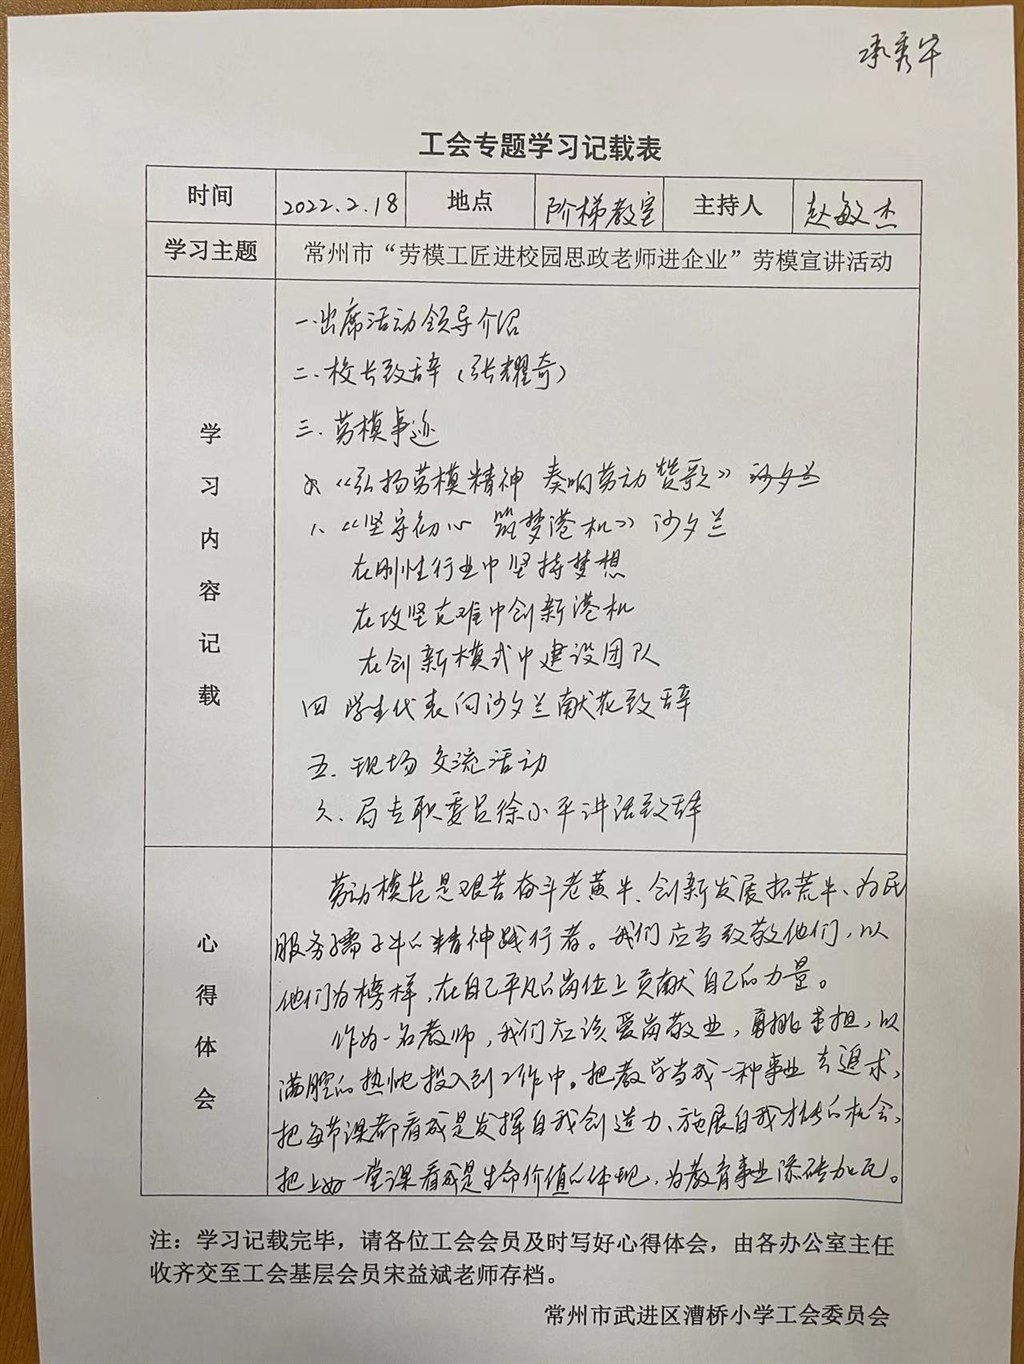 承秀华
工会专题学习记载表
时间 2022.2.18 地点 阶梯教室 主持人 赵敏杰
学习主题 常州市“劳模工匠进校园思政老师进企业”劳模宣讲活动
学习内容记载
一.出席活动领导介绍
二.校长致辞（张耀奇）
三.劳模事迹
《弘扬劳模精神 奏响劳动赞歌》沙夕兰
1.《坚守初心 筑梦港机》沙夕兰
在刚性行业中坚持梦想
在攻坚克难中创新港机
在创新模式中建设团队
四 学生代表向沙夕兰献花致辞
五.现场交流活动
六.局专职委员徐小平讲话致辞
心得体会
劳动模范是艰苦奋斗老黄牛、创新发展拓荒牛、为民
服务孺子牛的精神践行者。我们应当致敬他们，以
他们为榜样，在自己平凡的岗位上贡献自己的力量。
作为一名教师，我们应该爱岗敬业，勇挑重担，以
满腔的热忱投入到工作中。把教学当成一种事业去追求，
把每节课都看成是发挥自我创造力、施展自我才能的机会，
把上好一堂课看成是生命价值的体现，为教育事业添砖加瓦。
注：学习记载完毕，请各位工会会员及时写好心得体会，由各办公室主任
收齐交至工会基层会员宋益斌老师存档。
常州市武进区漕桥小学工会委员会